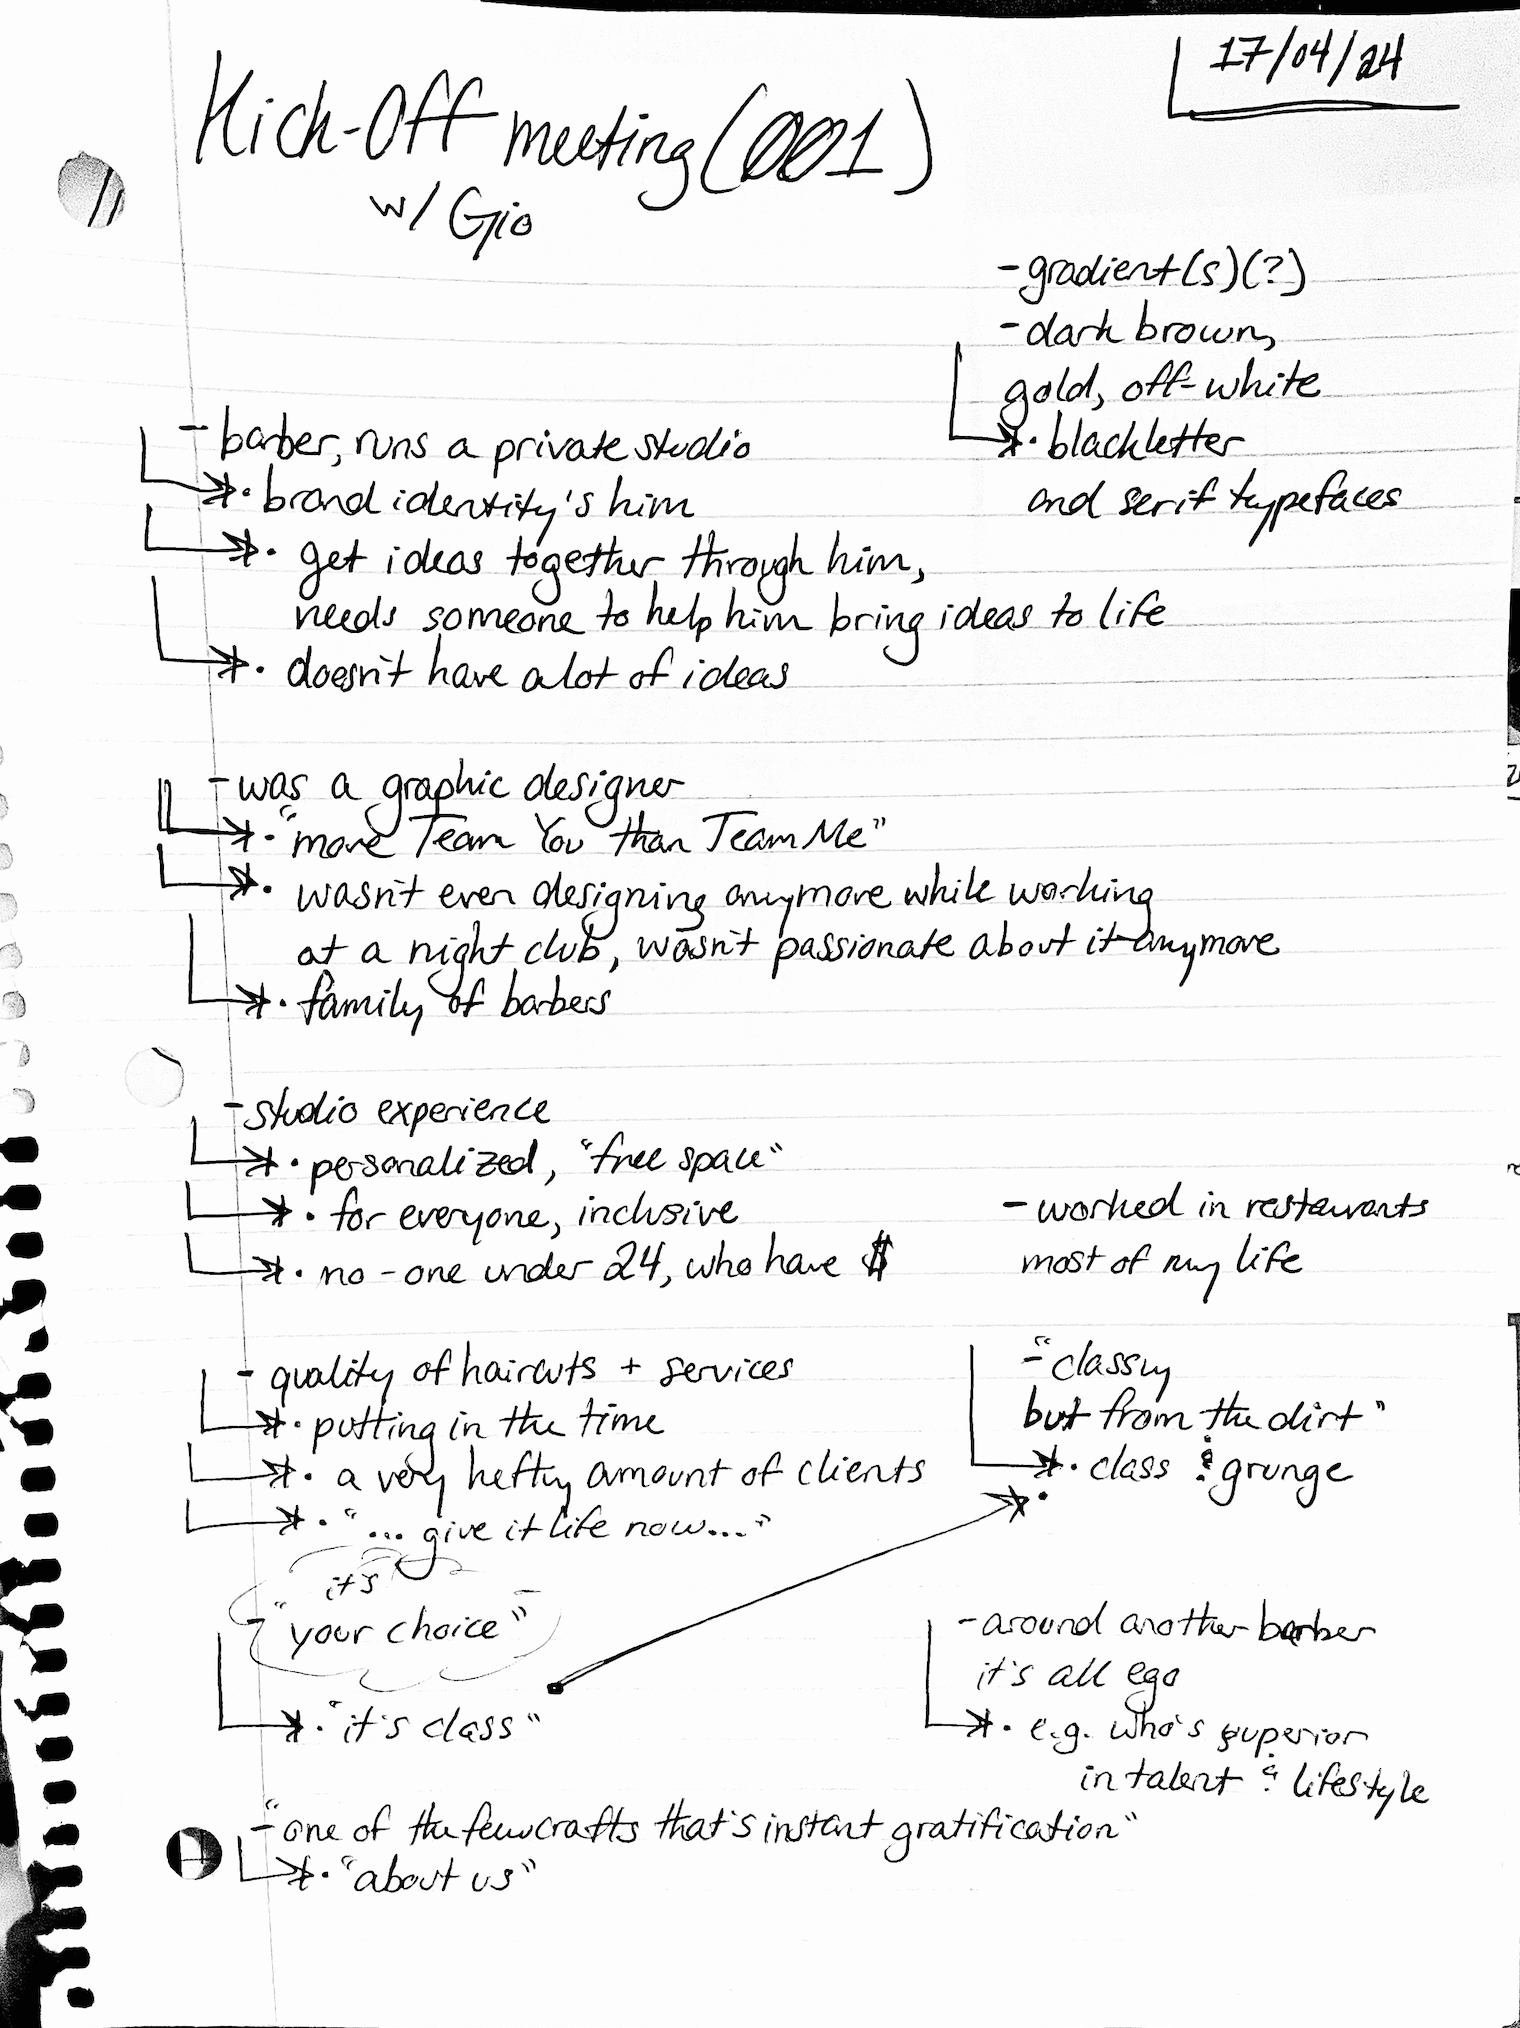 17/04/24
Kick-Off meeting (001)
w/ Gio
- gradient(s)(?)
- dark brown,
gold, off-white
• blackletter
and serif typefaces
- barber, runs a private studio
• brand identity's him
• get ideas together through him,
needs someone to help him bring ideas to life
• doesn't have alot of ideas
- was a graphic designer
• "more Team You than Team Me"
• wasn't even designing anymore while working
at a night club, wasn't passionate about it anymore
• family of barbers
- studio experience
• personalized, "free space"
• for everyone, inclusive
• no-one under 24, who have $
- worked in restaurants
most of my life
- quality of haircuts + services
• putting in the time
• a very hefty amount of clients
• "... give it life now..."
- "classy
but from the dirt"
• class & grunge
•
it's
- "your choice"
• "it's class"
- around another barber
it's all ego
• e.g. who's superior
in talent & lifestyle
- "one of the few crafts that's instant gratification"
• "about us"